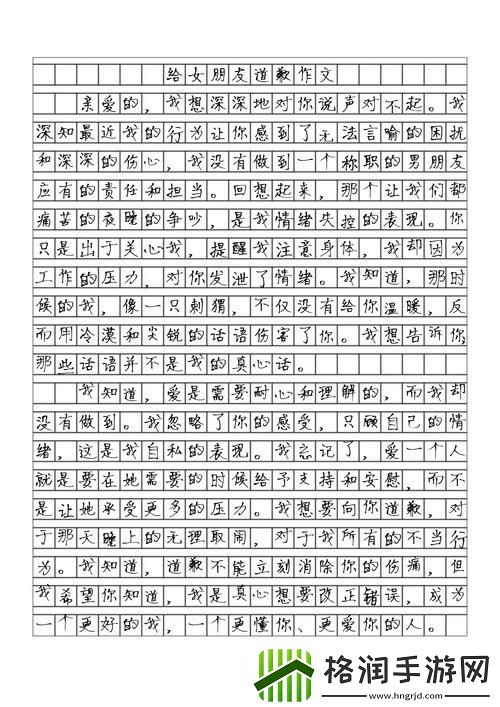 给女朋友道歉作文
亲爱的，我想深深地对你说声对不起。我
深知最近我的行为让你感到了无法言喻的困扰
和深深的伤心，我没有做到一个称职的男朋友
应有的责任和担当。回想起来，那个让我们都
痛苦的夜晚的争吵，是我情绪失控的表现。你
只是出于关心我，提醒我注意身体，我却因为
工作的压力，对你发泄了情绪。我知道，那时
候的我，像一只刺猬，不仅没有给你温暖，反
而用冷漠和尖锐的话语伤害了你。我想告诉你，
那些话语并不是我的真心话。
我知道，爱是需要耐心和理解的，而我却
没有做到。我忽略了你的感受，只顾自己的情
绪，这是我自私的表现。我忘记了，爱一个人
就是要在她需要的时候给予支持和安慰，而不
是让她承受更多的压力。我想要向你道歉，对
于那天晚上的无理取闹，对于我所有的不当行
为。我知道，道歉不能立刻消除你的伤痛，但
我希望你知道，我是真心想要改正错误，成为
一个更好的我，一个更懂你、更爱你的人。
格润手游网
www.hngrjd.com